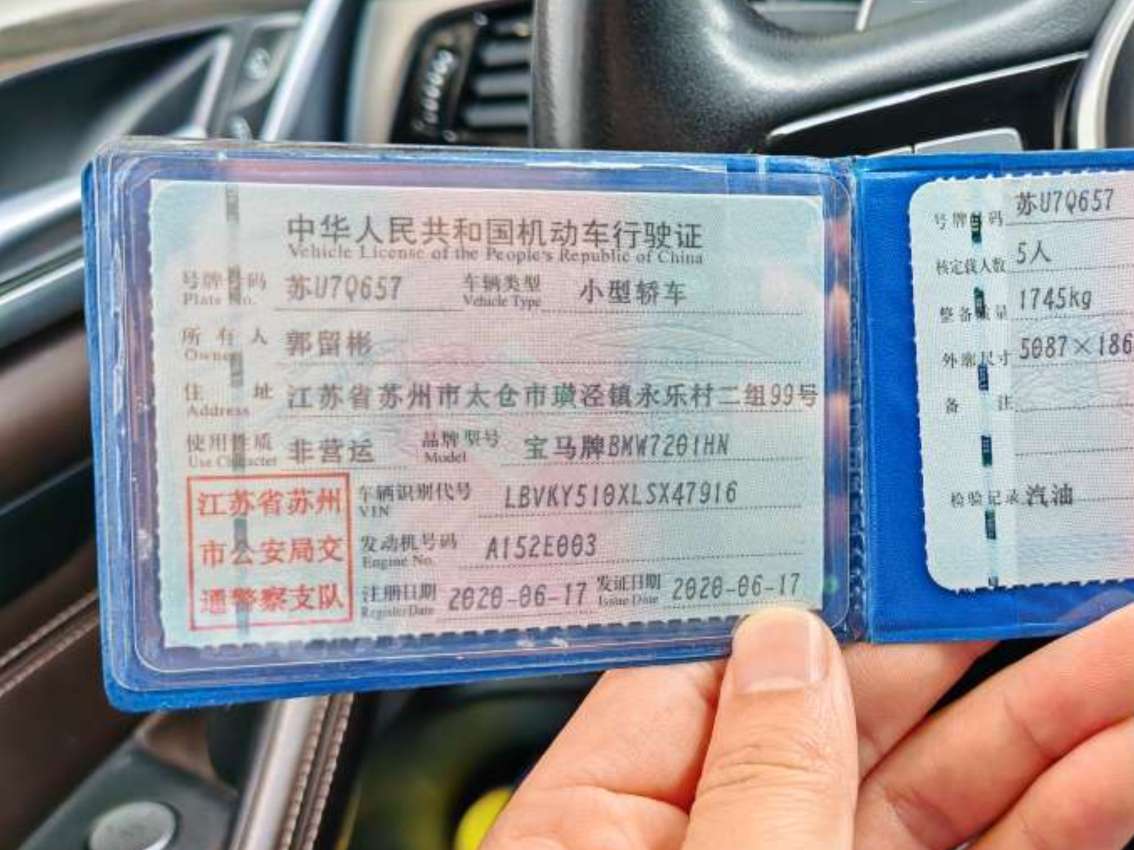 中华人民共和国机动车行驶证
Vehicle License of the People's Republic of China
号牌号码 苏U7Q657 车辆类型 小型轿车
Plate No. Vehicle Type
所有人 郭留彬
Owner
住址 江苏省苏州市太仓市璜泾镇永乐村二组99号
Address
使用性质 非营运 品牌型号 宝马牌BMW7201HN
Use Character Model
江苏省苏州
市公安局交
通警察支队
车辆识别代号 LBVKY510XLSX47916
VIN
发动机号码 A152E003
Engine No.
注册日期 2020-06-17 发证日期 2020-06-17
Register Date Issue Date
号牌号码 苏U7Q657
核定载人数 5人
整备质量 1745kg
外廓尺寸 5087×186
备注
检验记录 汽油